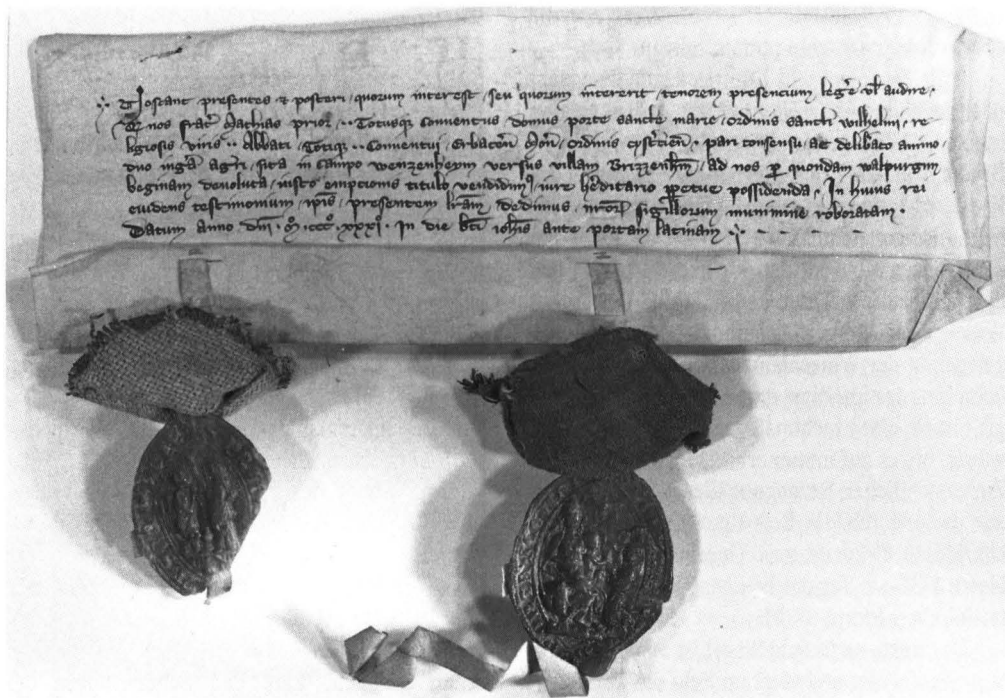 Noscant presentes et posteri, quorum interest, seu quorum intererit, tenorem presencium legere vel audire.
Quod nos frater Mathias prior, .. Totusque Conventus domus porte sancte marie, ordinis sancti wilhelmi, re
ligiosis viris .. Abbati, Totique .. Conventui, Erbacen Mon, ordinis cysterciens, pari consensu, ac deliberato animo,
duo iugera agri, sita in campo wenzenheym versus villam Brizzenheim, ad nos per quondam walpurgim
beginam devoluta, iusto empcionis titulo vendidimus, iure hereditario perpetue possidenda. In huius rei
euidens testimonium, ipsis, presentem litteram dedimus, nostrorum sigillorum munimine roboratam.
Datum anno dni. M. ccc. xxxi. In die bti iohis ante portam latinam